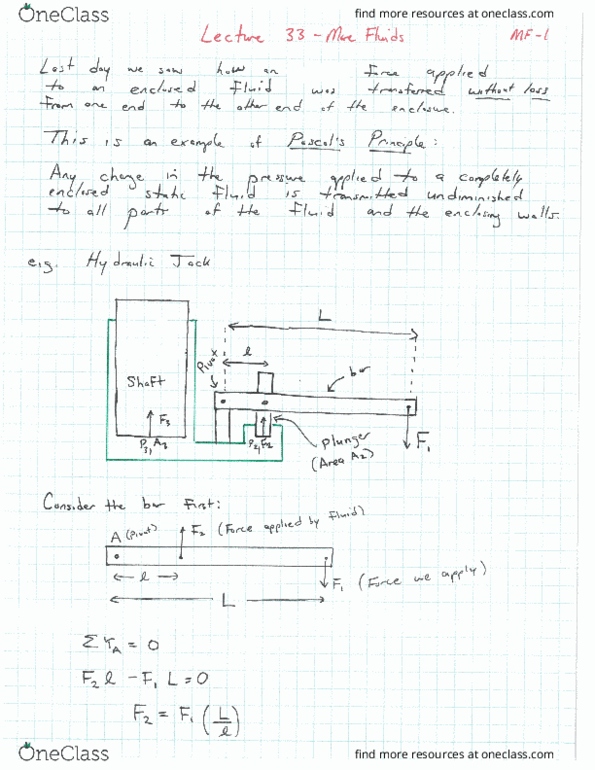 OneClass
find more resources at oneclass.com
Lecture 33 - More Fluids
MF-1
Last day we saw how an force applied
to an enclosed fluid was transferred without loss
from one end to the other end of the enclosure.
This is an example of Pascal's Principle:
Any change in the pressure applied to a completely
enclosed static fluid is transmitted undiminished
to all parts of the fluid and the enclosing walls.
e.g. Hydraulic Jack
L
l
Pivot
bar
Shaft
F3
P3, A3
P2, F2
plunger
(Area A2)
F1
Consider the bar first:
A (Pivot)
F2 (Force applied by fluid)
l
F1 (Force we apply)
L
Σ τA = 0
F2 l - F1 L = 0
F2 = F1 (L/l)
OneClass
find more resources at oneclass.com